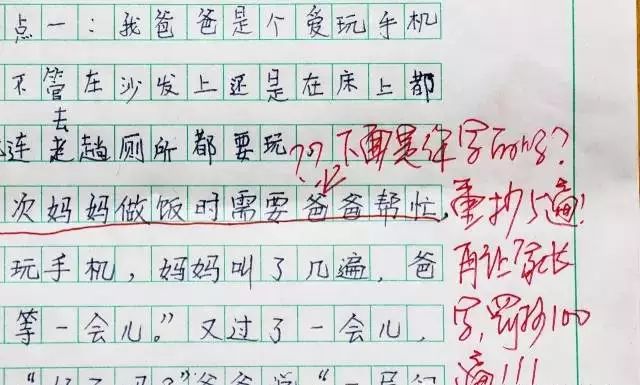 点一：我爸爸是个爱玩手机
不管在沙发上还是在床上都
连去趟厕所都要玩
？？下面是
字
次妈妈做饭时需要爸爸帮忙，
重抄5遍！
玩手机，妈妈叫了几遍，爸
再让家长
等一会儿。”又过了一会儿，
字，罚抄100
遍！！！
爸爸说“一局